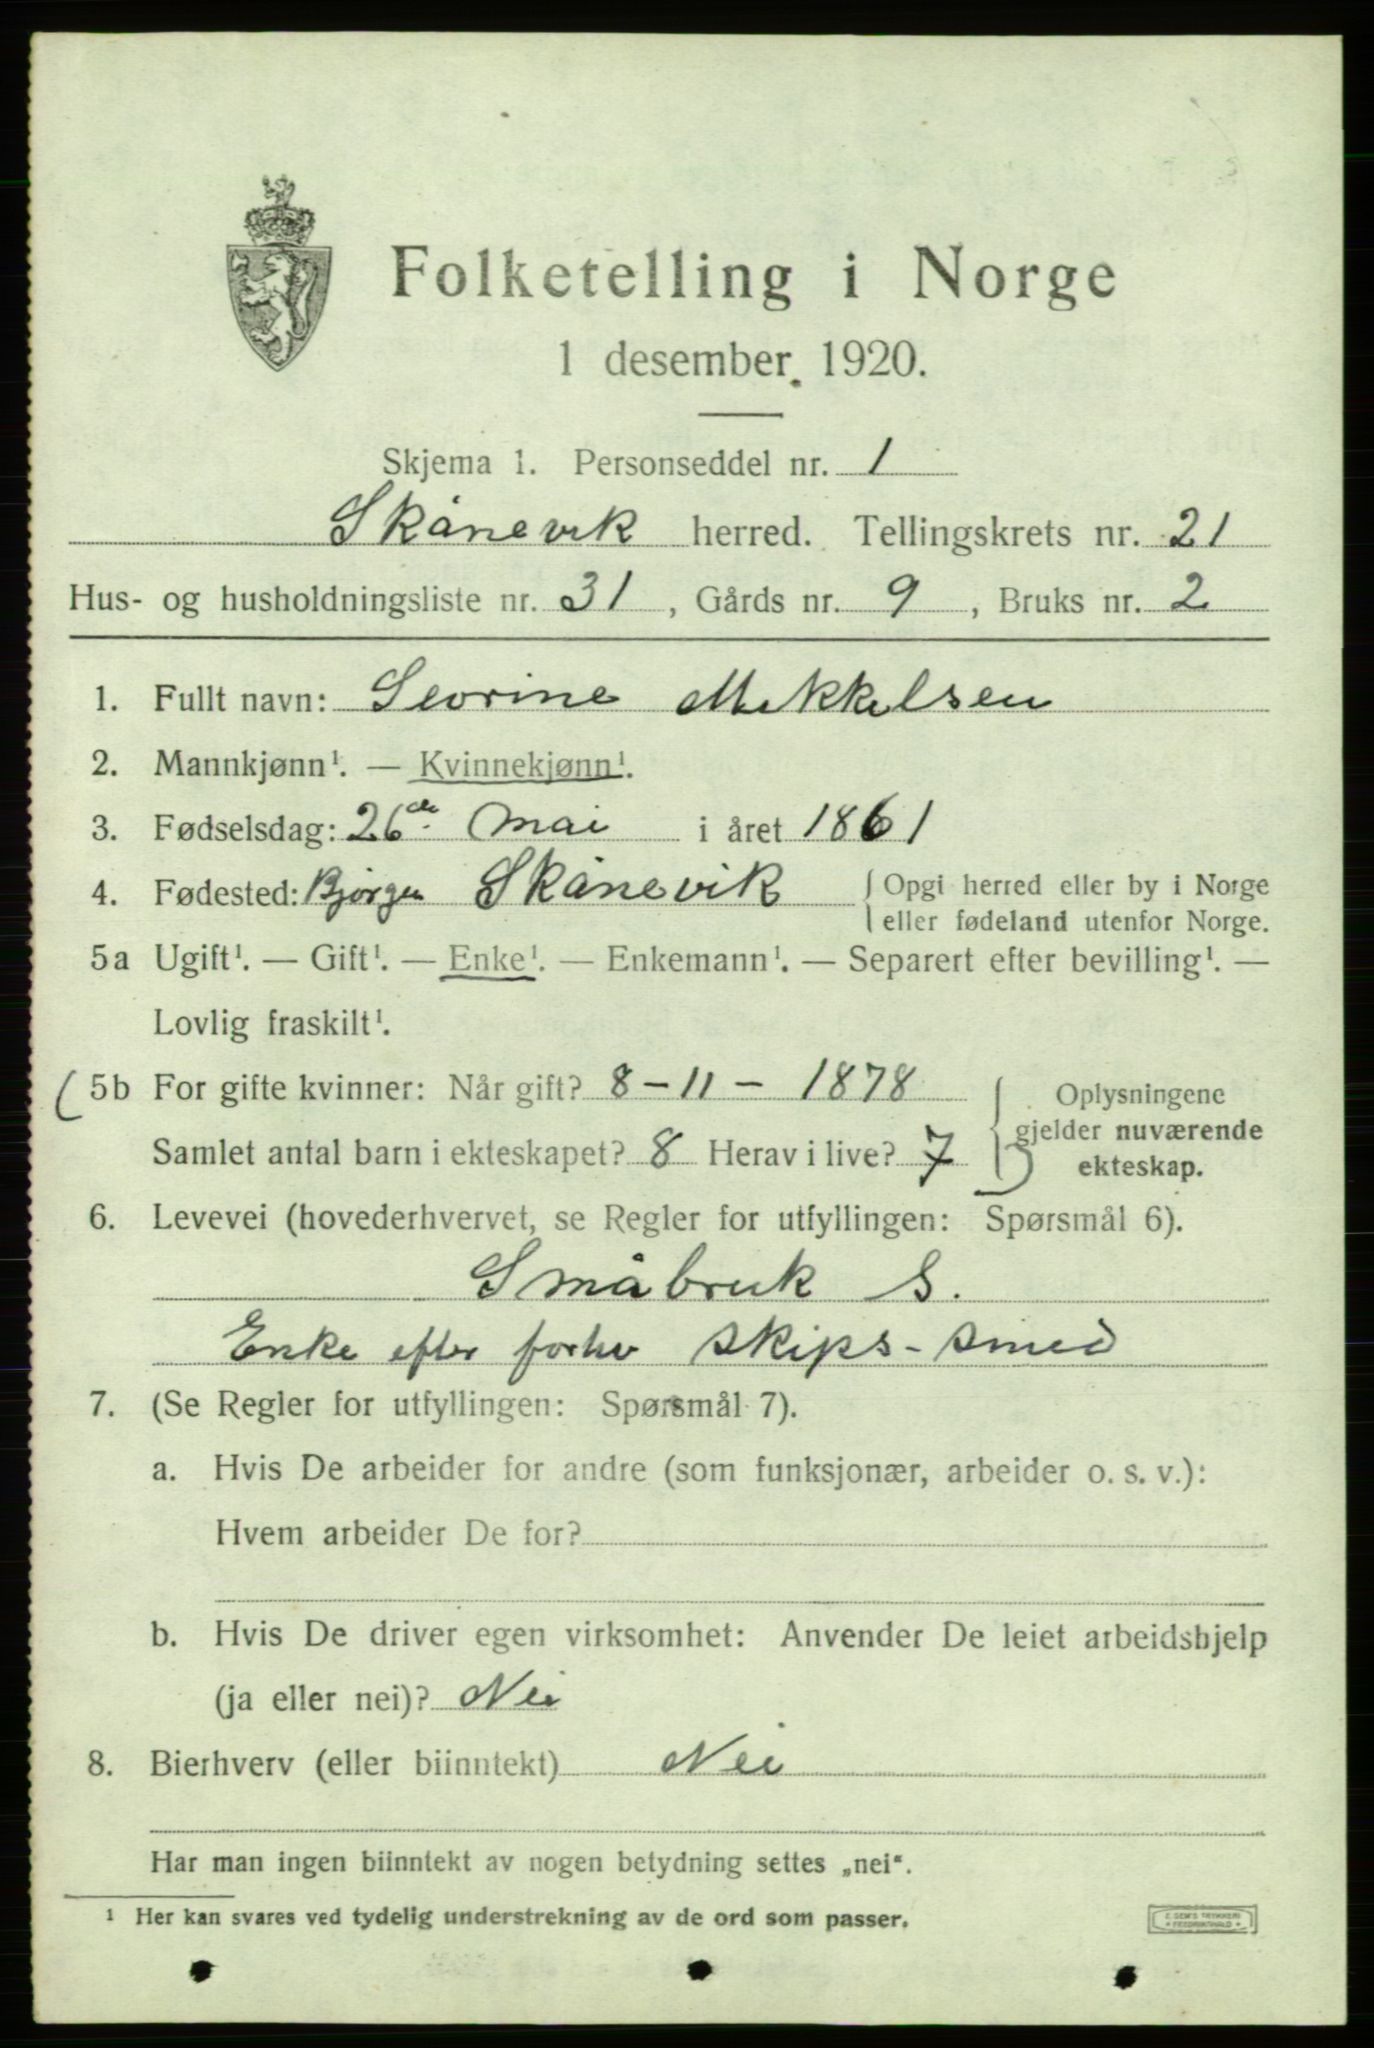 Folketelling i Norge
1 desember 1920.
Skjema 1. Personseddel nr. 1
Skånevik herred. Tellingskrets nr. 21
Hus- og husholdningsliste nr. 31, Gårds nr. 9, Bruks nr. 2
1. Fullt navn: Sevrine Mekkelsen
2. Mannkjønn¹. — Kvinnekjønn¹.
3. Fødselsdag: 26de. Mai i året 1861
4. Fødested: Bjørgen Skånevik { Opgi herred eller by i Norge
eller fødeland utenfor Norge.
5a Ugift¹. — Gift¹. — Enke¹. — Enkemann¹. — Separert efter bevilling¹. —
Lovlig fraskilt¹.
( 5b For gifte kvinner: Når gift? 8 - 11 - 1878
Samlet antal barn i ekteskapet? 8 Herav i live? 7
Oplysningene
gjelder nuværende
ekteskap.
6. Levevei (hovederhvervet, se Regler for utfyllingen: Spørsmål 6).
Småbruk S.
Enke efter forhv skips-smed
7. (Se Regler for utfyllingen: Spørsmål 7).
a. Hvis De arbeider for andre (som funksjonær, arbeider o. s. v.):
Hvem arbeider De for?
b. Hvis De driver egen virksomhet: Anvender De leiet arbeidshjelp
(ja eller nei)? Nei
8. Bierhverv (eller biinntekt) Nei
Har man ingen biinntekt av nogen betydning settes „nei“.
¹ Her kan svares ved tydelig understrekning av de ord som passer.
E. SEM'S TRYKKERI
FREDRIKSHALD